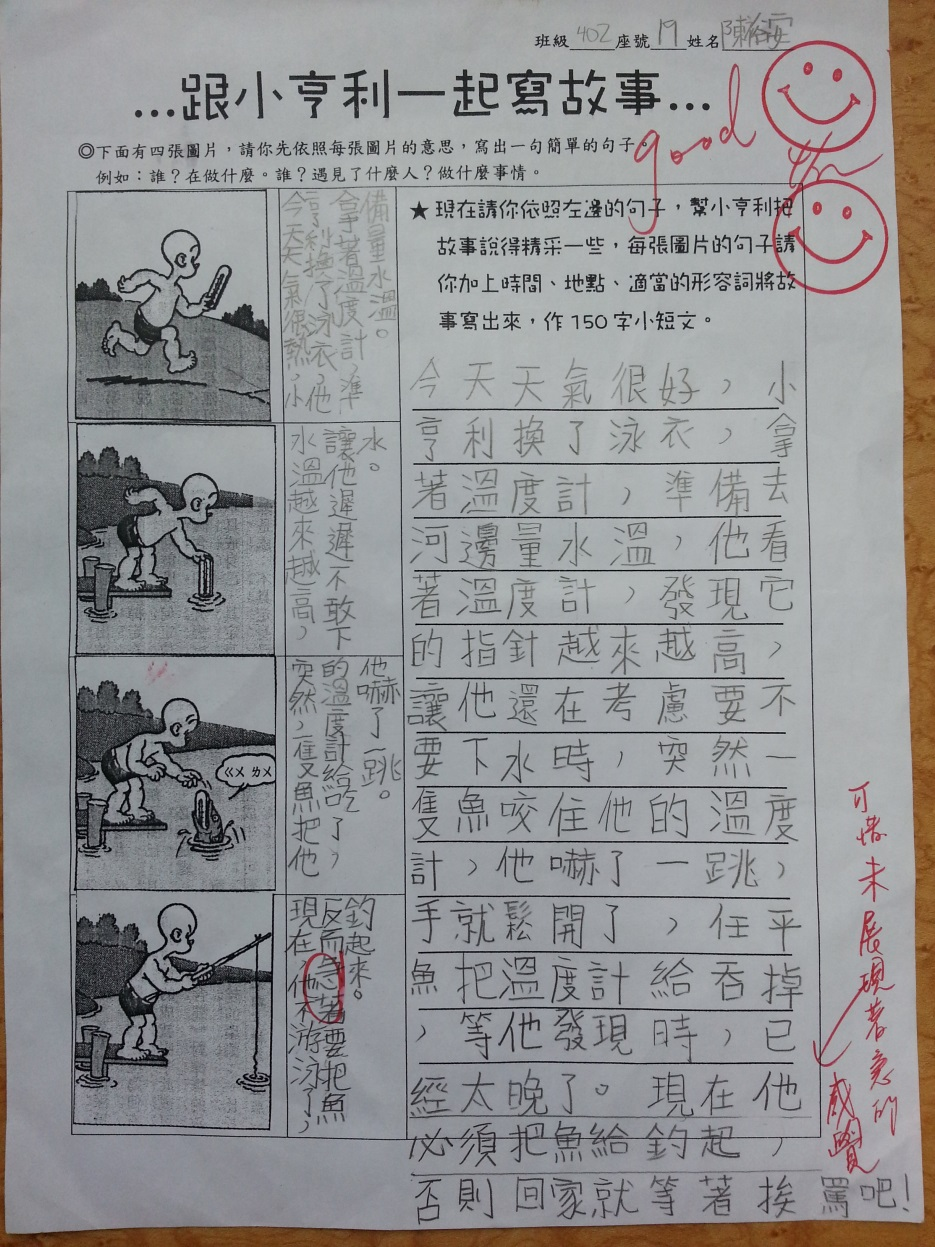 班級 402 座號 19 姓名 陳
...跟小亨利一起寫故事...
good
◎下面有四張圖片，請你先依照每張圖片的意思，寫出一句簡單的句子。
例如：誰？在做什麼。誰？遇見了什麼人？做什麼事情。
今天天氣很熱，小
亨利換了泳衣，他
拿著溫度計，準
備量水溫。
水溫越來越高，
讓他遲遲不敢下
水。
突然，一隻魚把他
的溫度計給吃了，
他嚇了一跳。
ㄍㄨ ㄌㄨ
現在，他不游泳了，
反而急著要把魚
釣起來。
★ 現在請你依照左邊的句子，幫小亨利把
故事說得精采一些，每張圖片的句子請
你加上時間、地點、適當的形容詞將故
事寫出來，作 150 字小短文。
今天天氣很好，小
亨利換了泳衣，拿
著溫度計，準備去
河邊量水溫，他看
著溫度計，發現它
的指針越來越高，
讓他還在考慮要不
要下水時，突然一
隻魚咬住他的溫度
計，他嚇了一跳，
手就鬆開了，任平
魚把溫度計給吞掉
，等他發現時，已
經太晚了。現在他
必須把魚給釣起，
否則回家就等著挨罵吧！
可惜未展現著急的
感覺